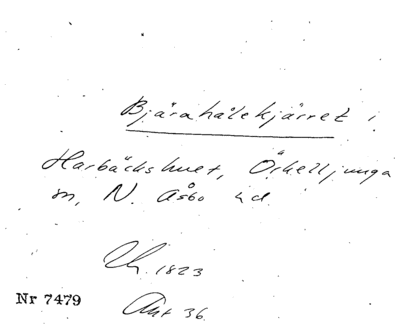 Bjärahålekjärret i
Harbäckshuset, Örkelljunga
sn, N. Åsbo hd.
1823
Nr 7479
Akt 36.